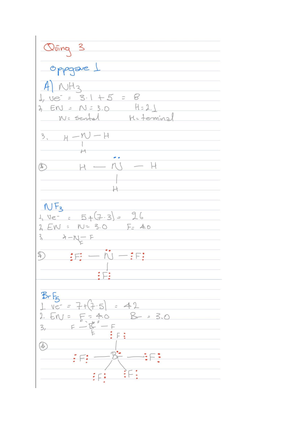 Øving 3
oppgave 1
A) NH3
1, ve⁻ = 3·1 + 5 = 8
2. EN = N = 3.0 H = 2.1
N = sentral H = terminal
3. H — N — H
H
④ H — N — H
H
NF3
1, ve⁻ = 5+(7·3) = 26
2. EN = N = 3.0 F = 4.0
3. F — N — F
F
④ F — N — F
F
BrF5
1. ve⁻ = 7+(7·5) = 42
2. EN = F = 4.0 Br = 3.0
3. F — Br — F
④ F
F — Br — F
F F